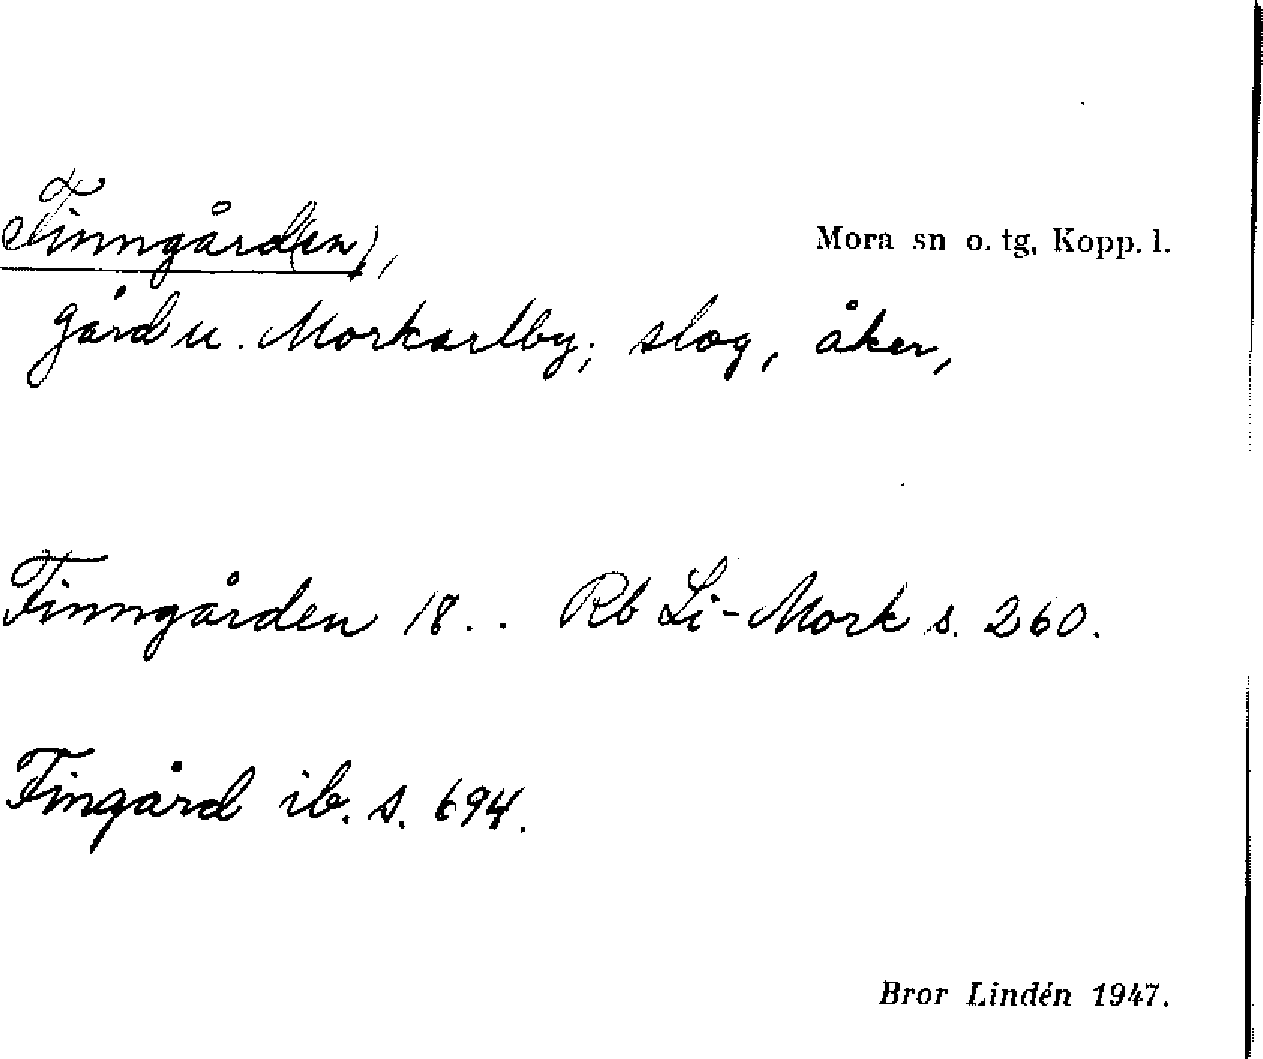 Finngård(en),
Mora sn o. tg, Kopp. l.
gård u. Morkarlby; slog, åker,
Finngården 18.. Rb Li-Mork s. 260.
Fingård ib. s. 694.
Bror Lindén 1947.